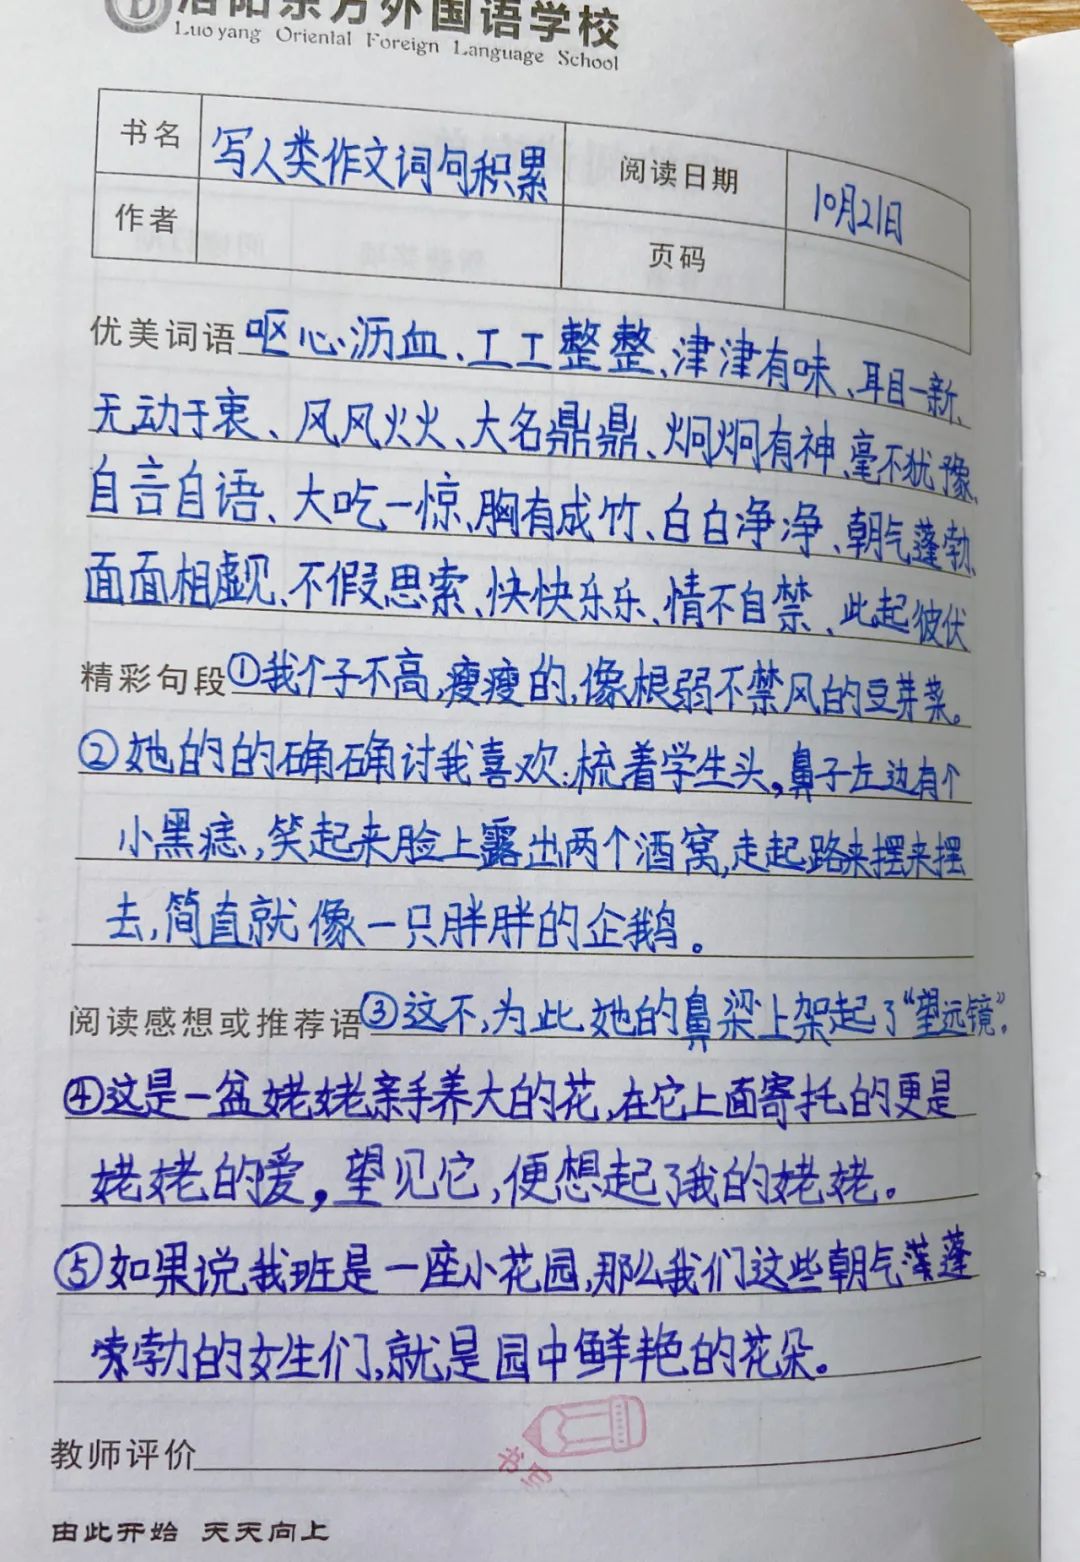 洛阳东方外国语学校
Luoyang Oriental Foreign Language School
书名 写人类作文词句积累 阅读日期 10月21日
作者 页码
优美词语 呕心沥血、工工整整、津津有味、耳目一新、
无动于衷、风风火火、大名鼎鼎、炯炯有神、毫不犹豫、
自言自语、大吃一惊、胸有成竹、白白净净、朝气蓬勃、
面面相觑、不假思索、快快乐乐、情不自禁、此起彼伏
精彩句段①我个子不高,瘦瘦的,像根弱不禁风的豆芽菜。
②她的的确确讨我喜欢:梳着学生头,鼻子左边有个
小黑痣,笑起来脸上露出两个酒窝,走起路来摆来摆
去,简直就像一只胖胖的企鹅。
阅读感想或推荐语③这不,为此她的鼻梁上架起了“望远镜”。
④这是一盆姥姥亲手养大的花,在它上面寄托的更是
姥姥的爱,望见它,便想起了我的姥姥。
⑤如果说我班是一座小花园,那么我们这些朝气蓬
勃的女生们,就是园中鲜艳的花朵。
教师评价
书写
由此开始 天天向上